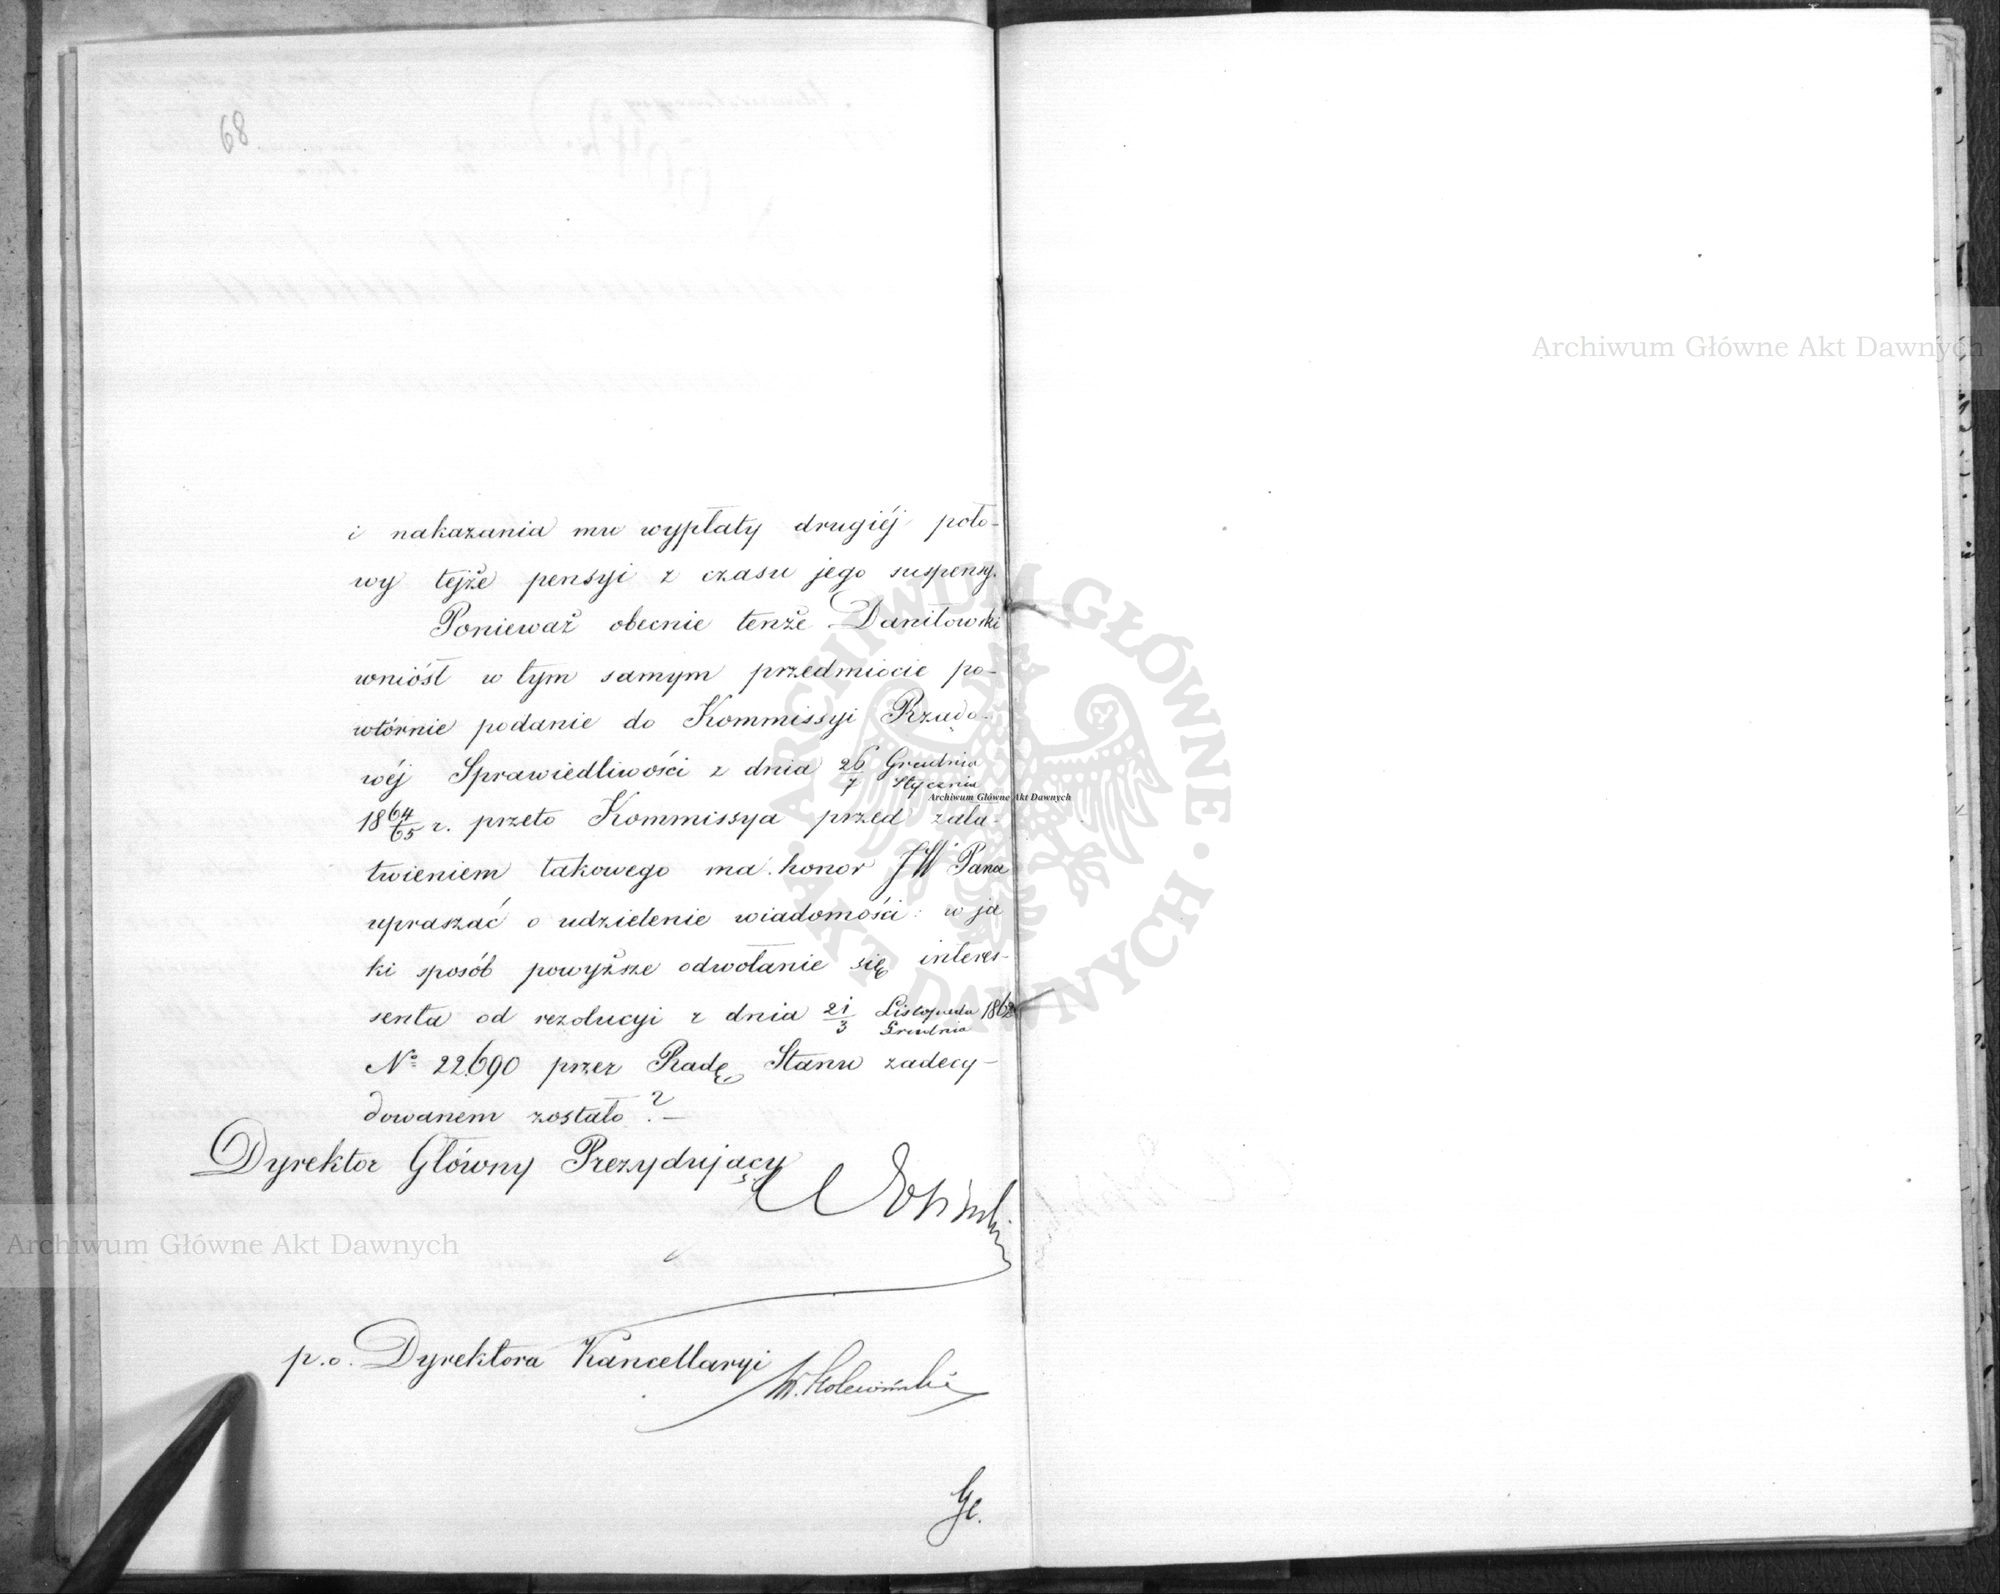 68
i nakazania mu wypłaty drugiéj poło-
wy tejże pensyi z czasu jego suspensy.
Ponieważ obecnie tenże Daniłowski
wniósł w tym samym przedmiocie po-
wtórnie podanie do Kommissyi Rządo-
wéj Sprawiedliwości z dnia 26/7 Grudnia/Stycznia
1864/65 r. przeto Kommissya przed zała-
twieniem takowego ma honor JW Pana
upraszać o udzielenie wiadomości: w ja
ki sposób powyższe odwołanie się interes-
senta od rezolucyi z dnia 21/3 Listopada/Grudnia 1862
No 22690 przez Radę Stanu zadecy-
dowanem zostało?—
Dyrektor Główny Prezydujący
p.o. Dyrektora Kancellaryi
Archiwum Główne Akt Dawnych
Archiwum Główne Akt Dawnych
Archiwum Główne Akt Dawnych
ARCHIWUM GŁÓWNE · AKT DAWNYCH ·